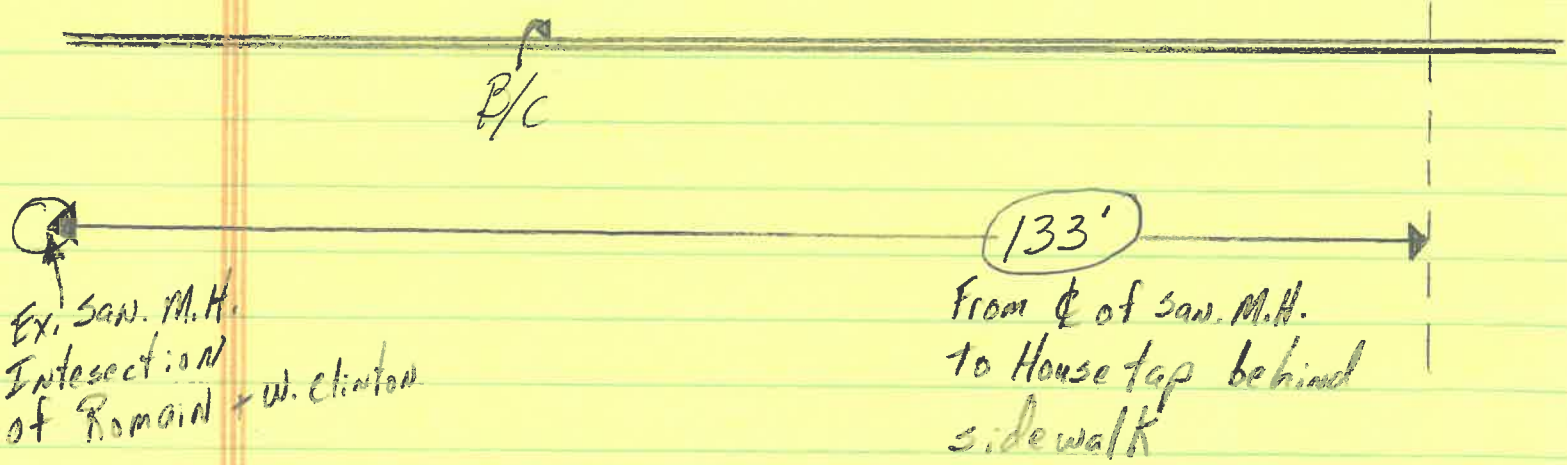 B/C
133'
Ex. San. M.H.
Intesection
of Romain + W. Clinton
From ℄ of San. M.H.
to House tap behind
sidewalk